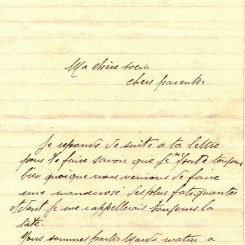 Ma chère soeur
chers parents
Je réponds de suite à ta lettre
pour te faire savoir que je toujours
bien quoique nous venions de faire
une manoeuvre des plus fatiguantes
et dont je me rappellerais toujours la
date.
Nous sommes partis Mardi matin a